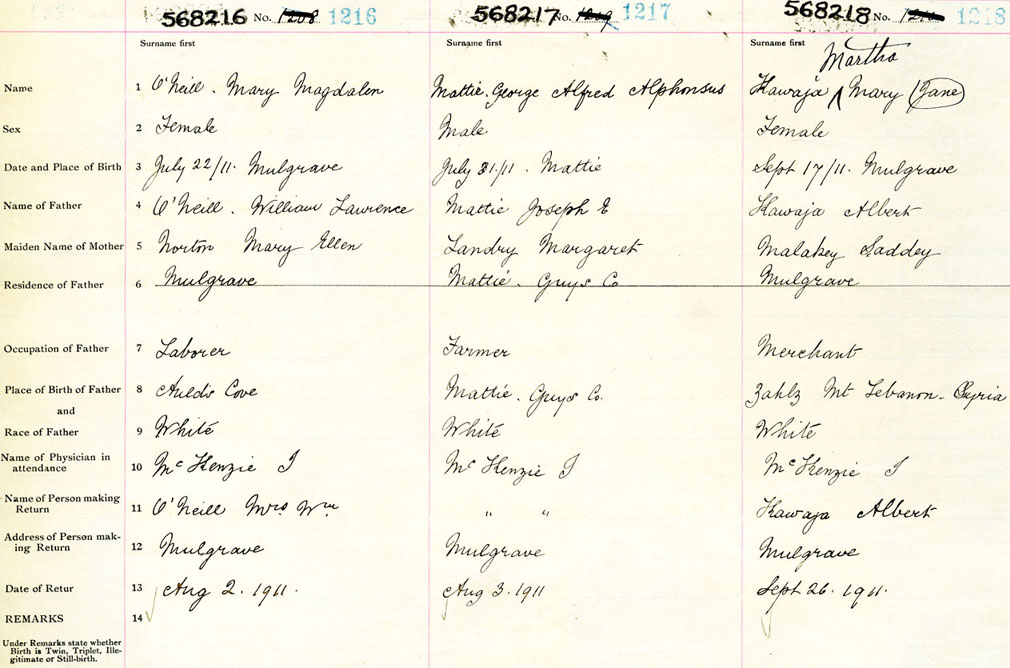 568216 No. 1208 1216 568217 No. 1209 1217 568218 No. 1210 1218
Surname first Surname first Surname first
Martha
Name 1 O'Neill. Mary Magdalen Mattie. George Alfred Alphonsus Kawaja ∧ Mary (Jane)
Sex 2 Female Male Female
Date and Place of Birth 3 July 22/11. Mulgrave July 31/11. Mattie Sept 17/11. Mulgrave
Name of Father 4 O'Neill. William Lawrence Mattie Joseph E Kawaja Albert
Maiden Name of Mother 5 Norton Mary Ellen Landry Margaret Malakey Saddey
Residence of Father 6 Mulgrave Mattie. Guys Co Mulgrave
Occupation of Father 7 Laborer Farmer Merchant
Place of Birth of Father 8 Aulds Cove Mattie. Guys Co. Zahlz Mt Lebanon. Syria
and
Race of Father 9 White White White
Name of Physician in
attendance 10 McKenzie J McKenzie J McKenzie J
Name of Person making
Return 11 O'Neill Mrs Wm " " Kawaja Albert
Address of Person mak-
ing Return 12 Mulgrave Mulgrave Mulgrave
Date of Retur 13 Aug 2. 1911. Aug 3. 1911 Sept 26. 1911.
REMARKS 14
Under Remarks state whether
Birth is Twin, Triplet, Ille-
gitimate or Still-birth.